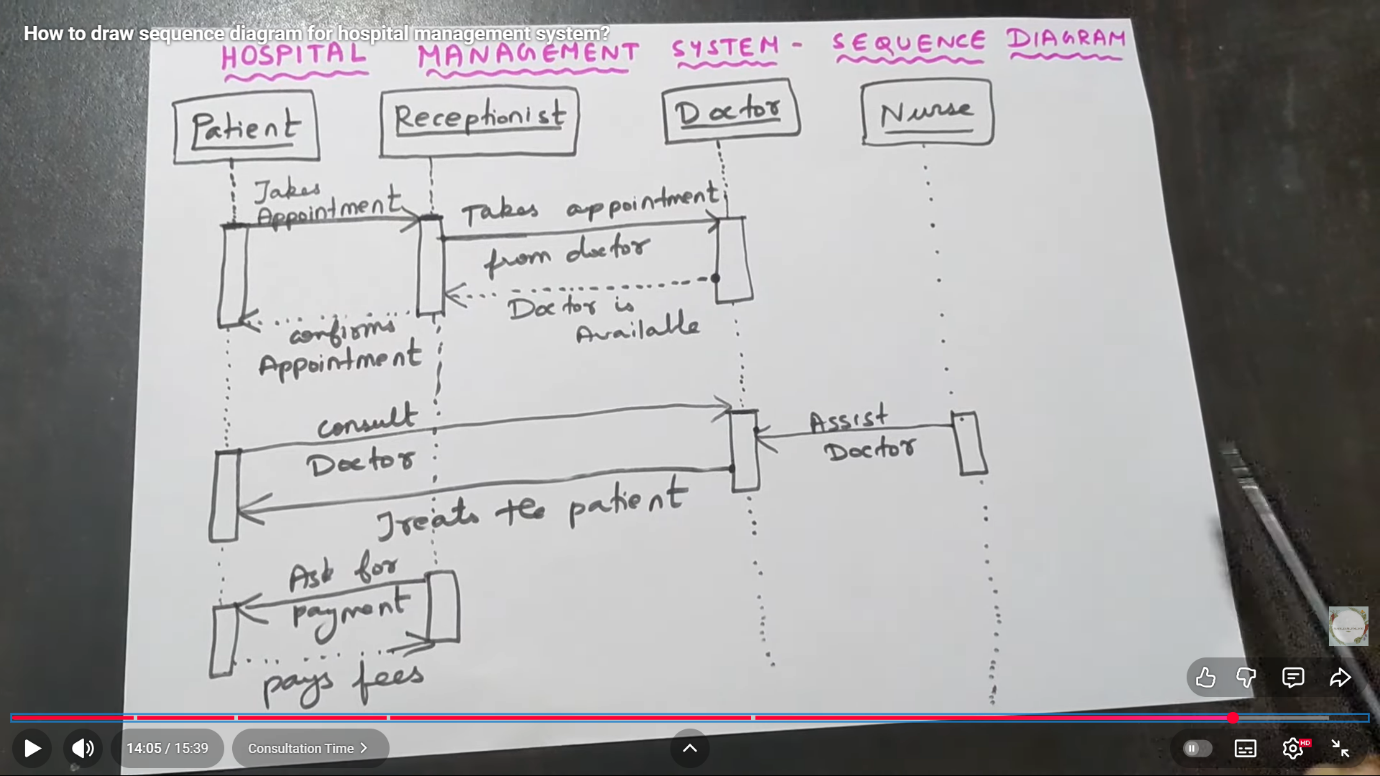 How to draw sequence diagram for hospital management system?
HOSPITAL MANAGEMENT SYSTEM - SEQUENCE DIAGRAM
Patient
Receptionist
Doctor
Nurse
Takes
Appointment
Takes appointment
from doctor
Doctor is
Available
confirms
Appointment
consult
Doctor
Assist
Doctor
Treats the patient
Ask for
payment
pays fees
14:05 / 15:39
Consultation Time
HD